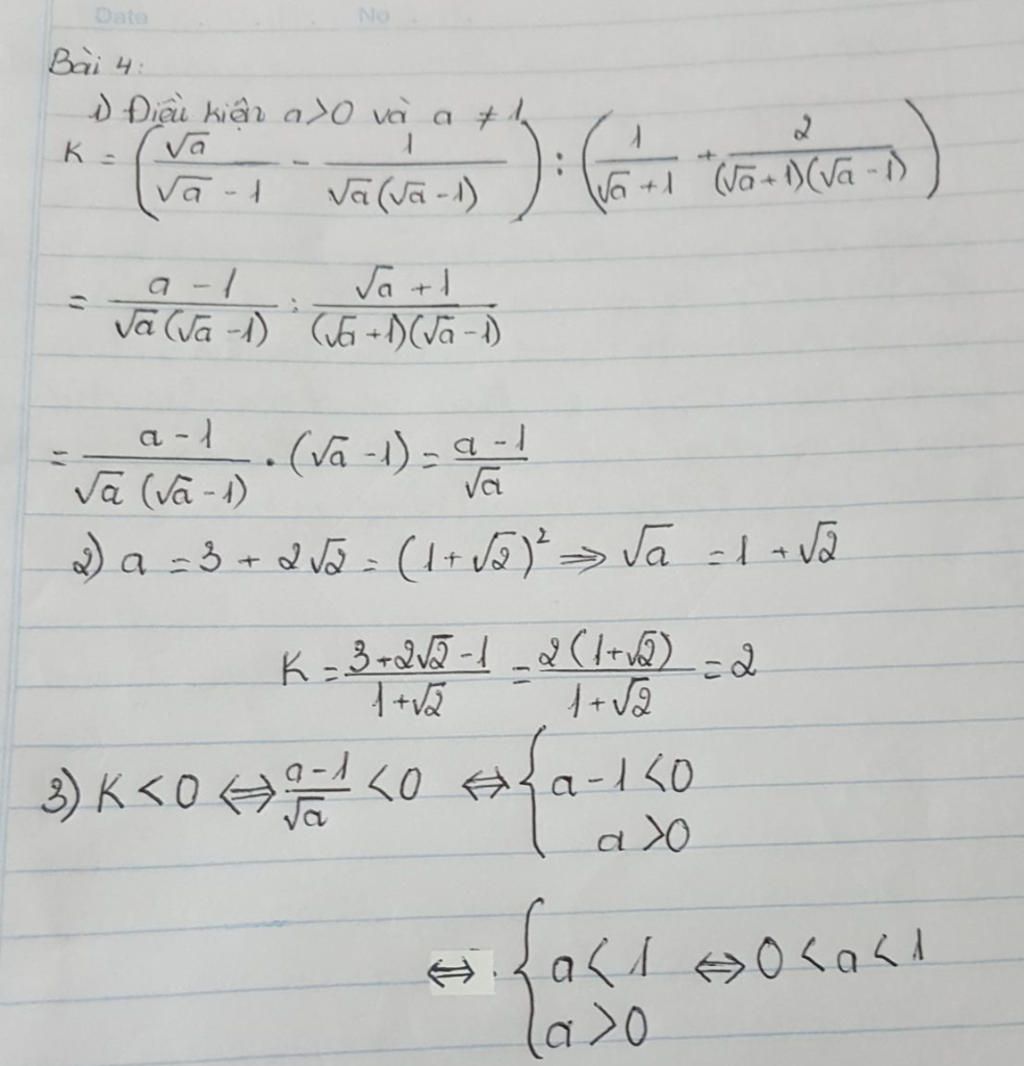 Date No
Bài 4:
1) Điều kiện a>0 và a ≠ 1
K = (√a/(√a - 1) - 1/(√a(√a - 1))) : (1/(√a + 1) + 2/((√a + 1)(√a - 1)))
= (a - 1)/(√a(√a - 1)) : (√a + 1)/((√a + 1)(√a - 1))
= (a - 1)/(√a(√a - 1)) . (√a - 1) = (a - 1)/√a
2) a = 3 + 2√2 = (1 + √2)² ⇒ √a = 1 + √2
K = (3 + 2√2 - 1)/(1 + √2) = 2(1 + √2)/(1 + √2) = 2
3) K < 0 ⇔ (a - 1)/√a < 0 ⇔ { a - 1 < 0
a > 0
⇔ { a < 1 ⇔ 0 < a < 1
a > 0